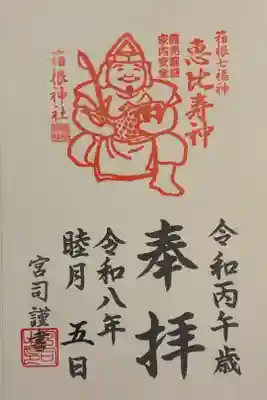 箱根七福神
恵比寿神
商売繁盛
家内安全
箱根神社
令和丙午歳
奉拝
令和八年
睦月 五日
宮司謹書